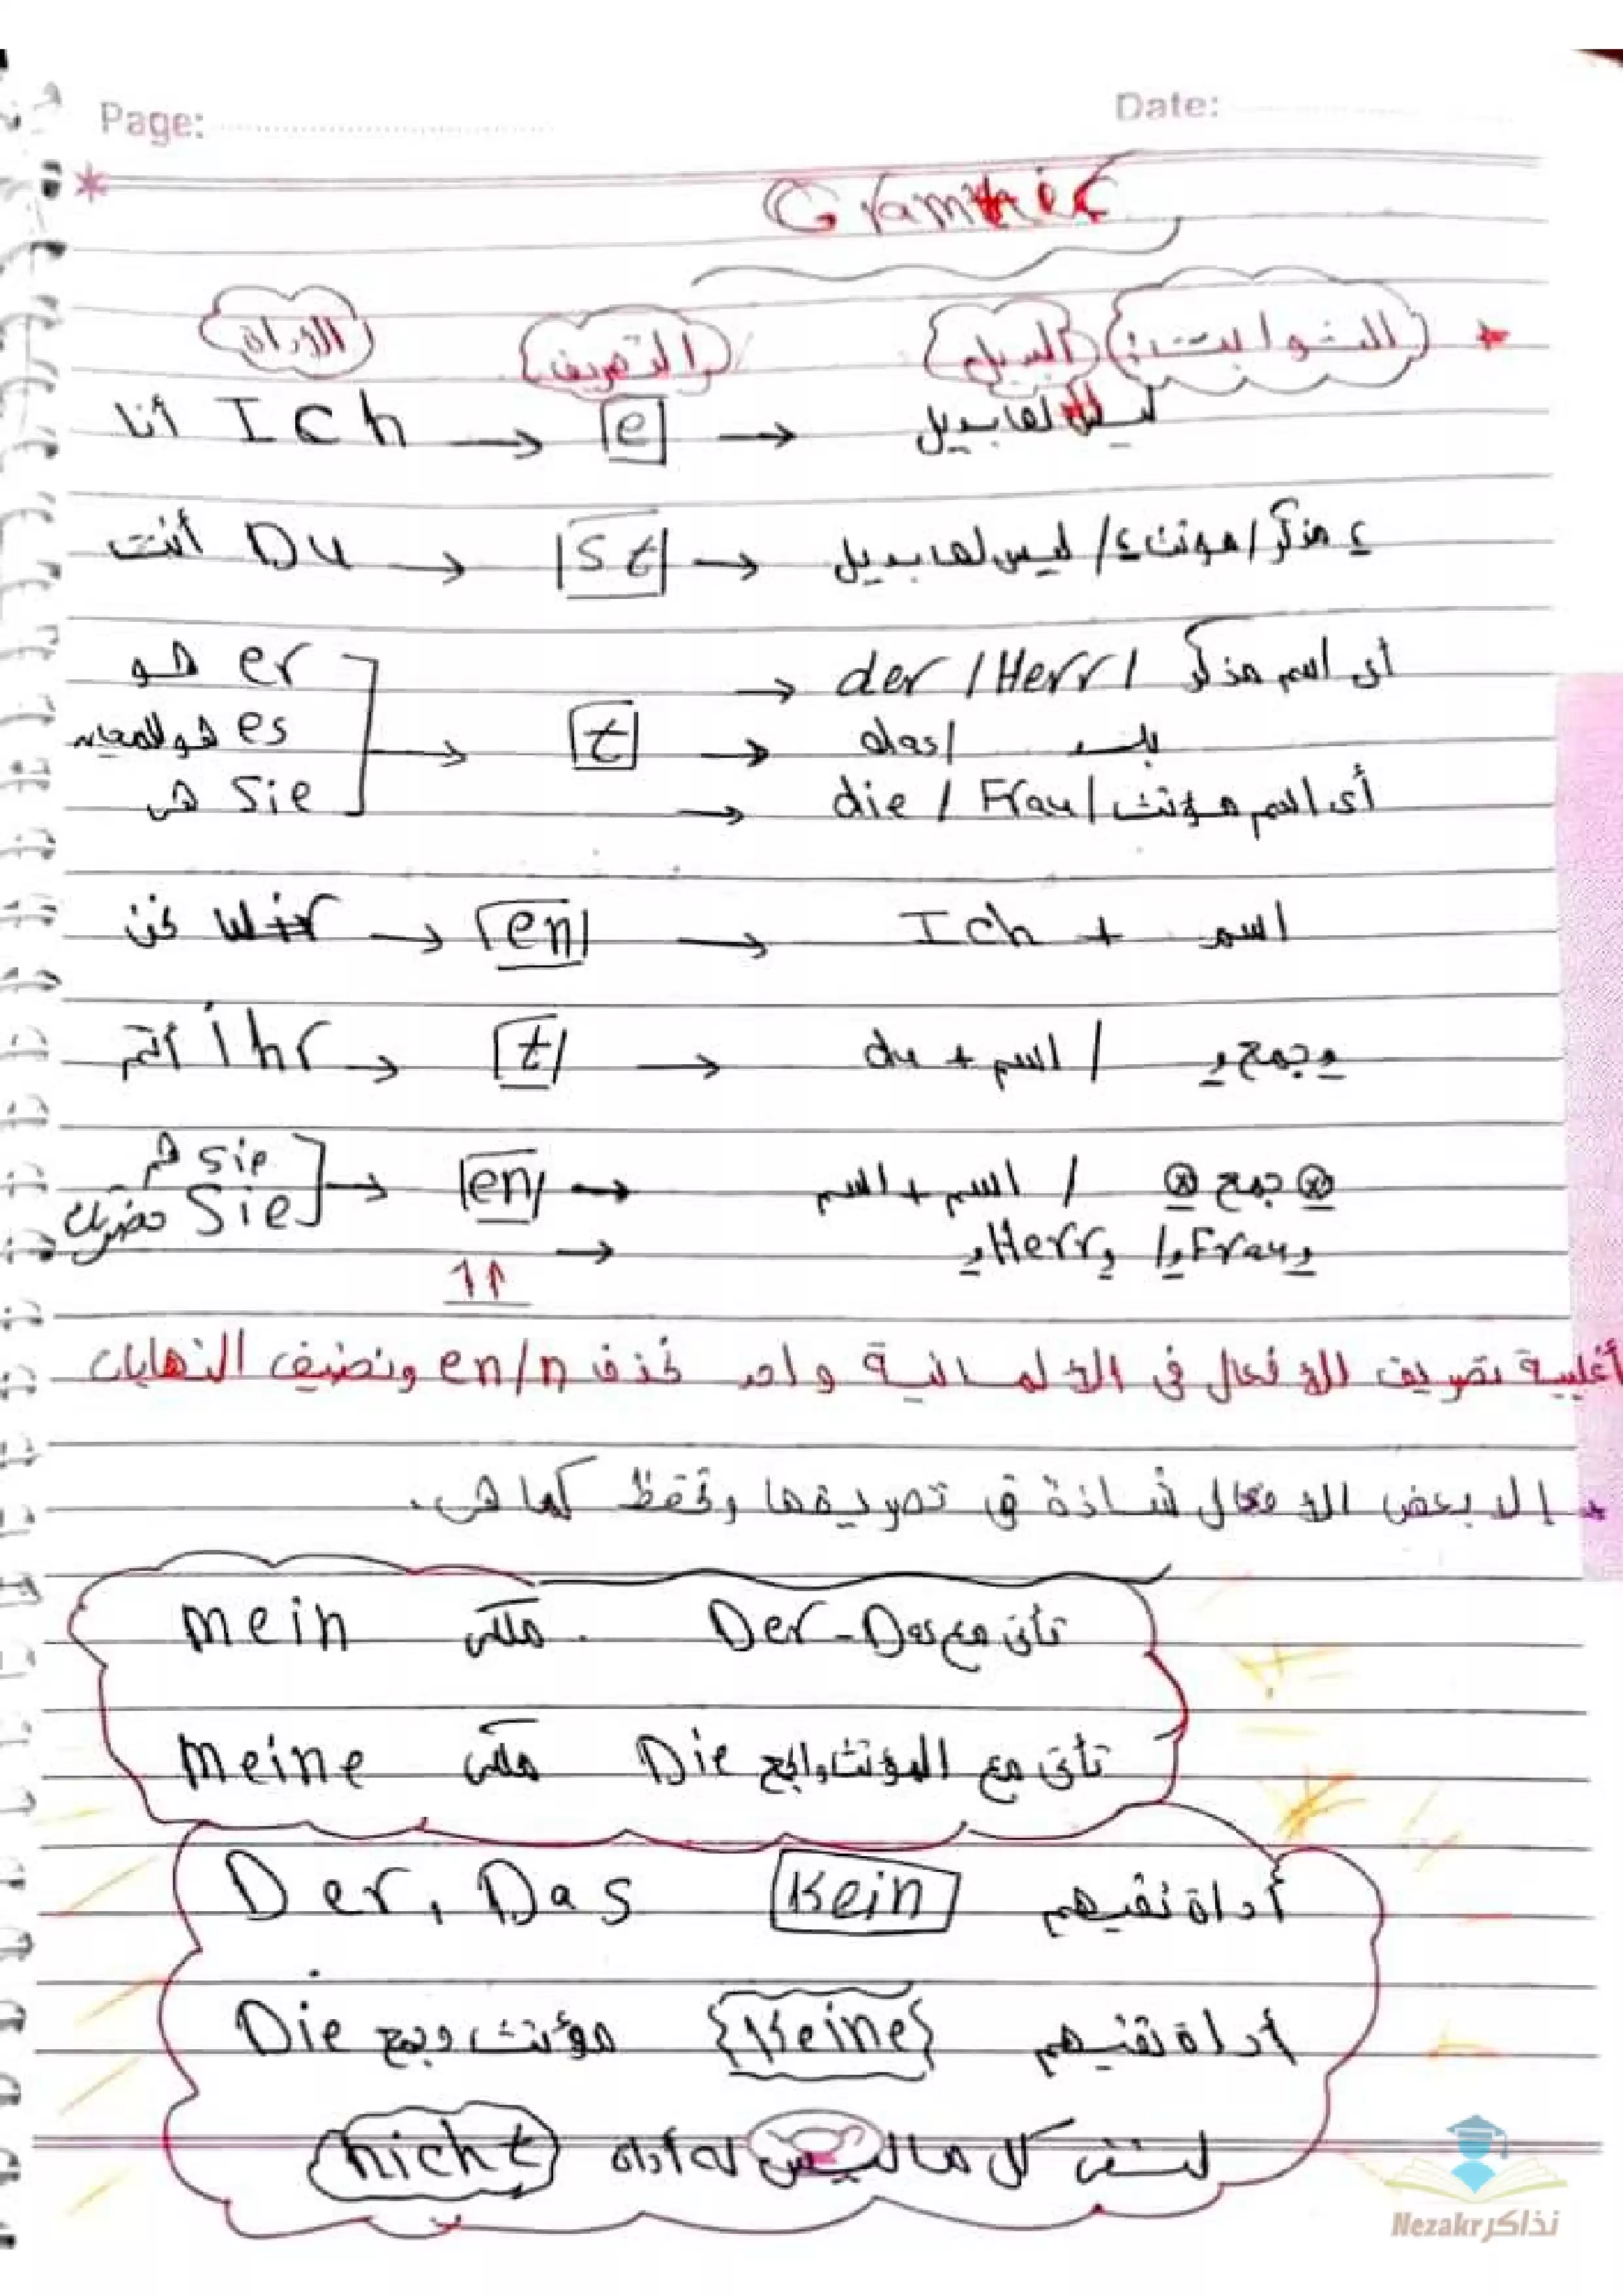 Page:
Date:
Gramtik
* الثوابت: البديل التصريف الأداة
أنا Ich → e → ليس لها بديل
أنت Du → st → ليس لها بديل / مذكر / مؤنث
هو er → der / Herr / أى اسم مذكر
es → t → das / بلد
هى Sie → die / Frau / أى اسم مؤنث
نحن wir → en → Ich + اسم
أنتم ihr → t → du + اسم / "جمع"
هم sie → en → اسم + اسم / جمع
حضرتك Sie → "Herr" / "Frau"
أغلبية تصريف الأفعال فى الألمانية واحد نحذف en/n ونضيف النهايات
* إلا بعض الأفعال شاذة فى تصريفها وتحفظ كما هى.
mein ملكى. Der - Das تأتى مع
meine ملكى Die تأتى مع المؤنث والجمع
Der, Das Kein أداة نفيهم
Die مؤنث وجمع {Keine} أداة نفيهم
لنفى كل ما ليس له أداة nicht
Nezakr نذاكر